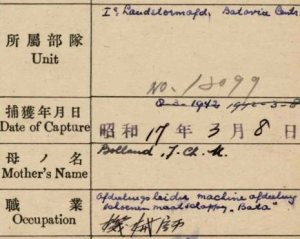 所屬部隊
Unit
Ie Landstormafd, Batavia Cents
No. 12099
捕獲年月日
Date of Capture
8-3-1942 1942-3-8
昭和 17 年 3 月 8 日
母ノ名
Mother's Name
Bolland, J. Ch. M.
職業
Occupation
Afdeelings leider machine afdeeling
schoenen maatschappy "Bata"
機械師